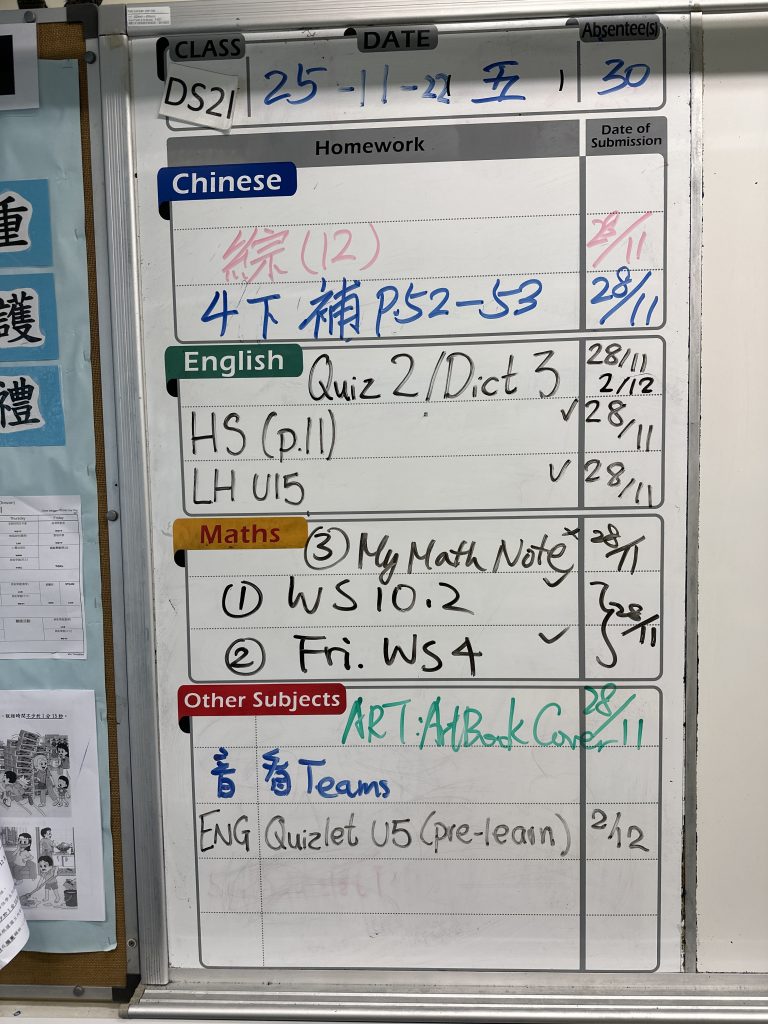 CLASS DATE Absentee(s)
DS21 25-11-22 五 30
Homework Date of Submission
Chinese
綜(12) 28/11
4下 補 P.52-53 28/11
English Quiz 2/Dict 3 28/11 2/12
HS (p.11) ✓ 28/11
LH U15 ✓ 28/11
Maths ③ My Math Notes × 28/11
① WS 10.2 ✓ 28/11
② Fri. WS 4 ✓
Other Subjects ART: ArtBook Cover 28/11
音 看 Teams
ENG Quizlet U5 (pre-learn) 2/12
重
護
禮
Thursday Friday